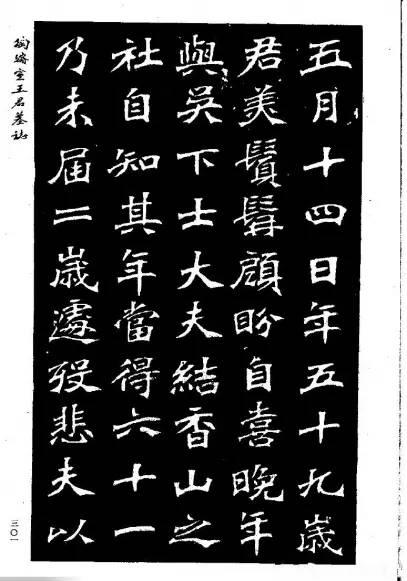 五月十四日年五十九歲
君美鬚髯顧盼自喜晚年
與吳下士大夫結香山之
社自知其年當得六十一
乃未屆二歲遽歿悲夫以
掏須室王君墓誌
三〇一